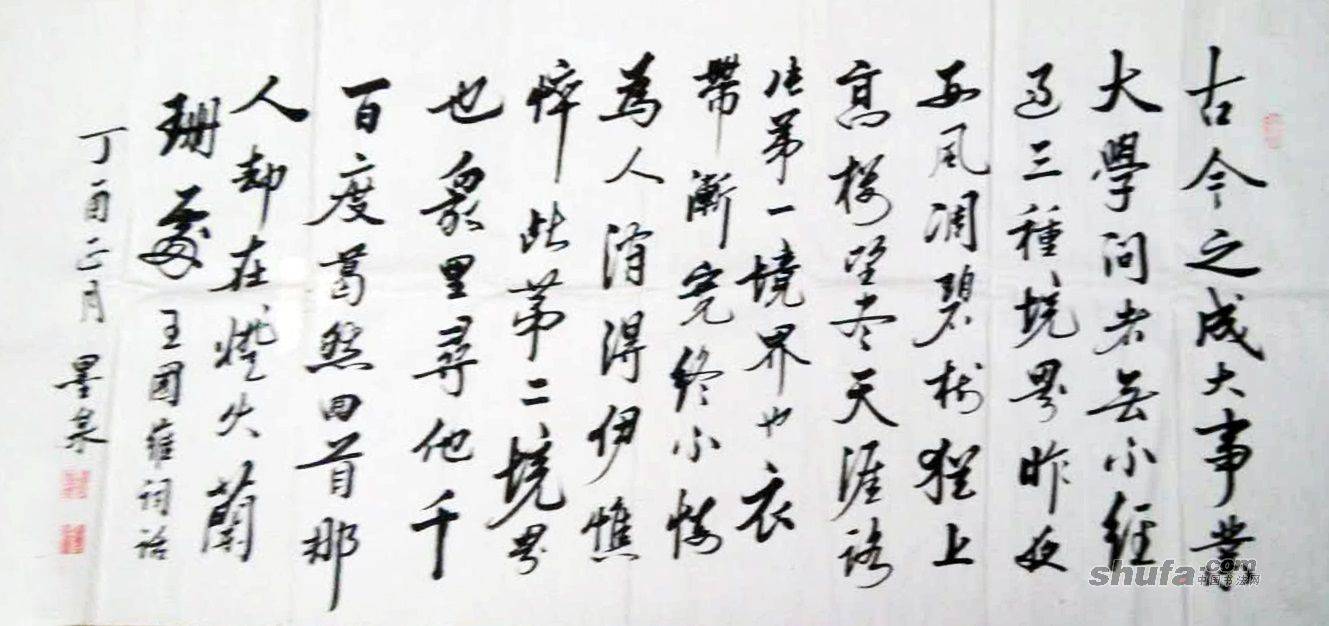 古今之成大事業
大學問者無不經
過三種境界昨夜
西風凋碧樹獨上
高樓望盡天涯路
此第一境界也衣
帶漸寬終不悔
為人消得伊憔
悴此第二境界
也眾里尋他千
百度蓦然回首那
人却在燈火蘭
珊處 王國維詞話
丁酉正月 墨泉
shufa.com 中国书法网